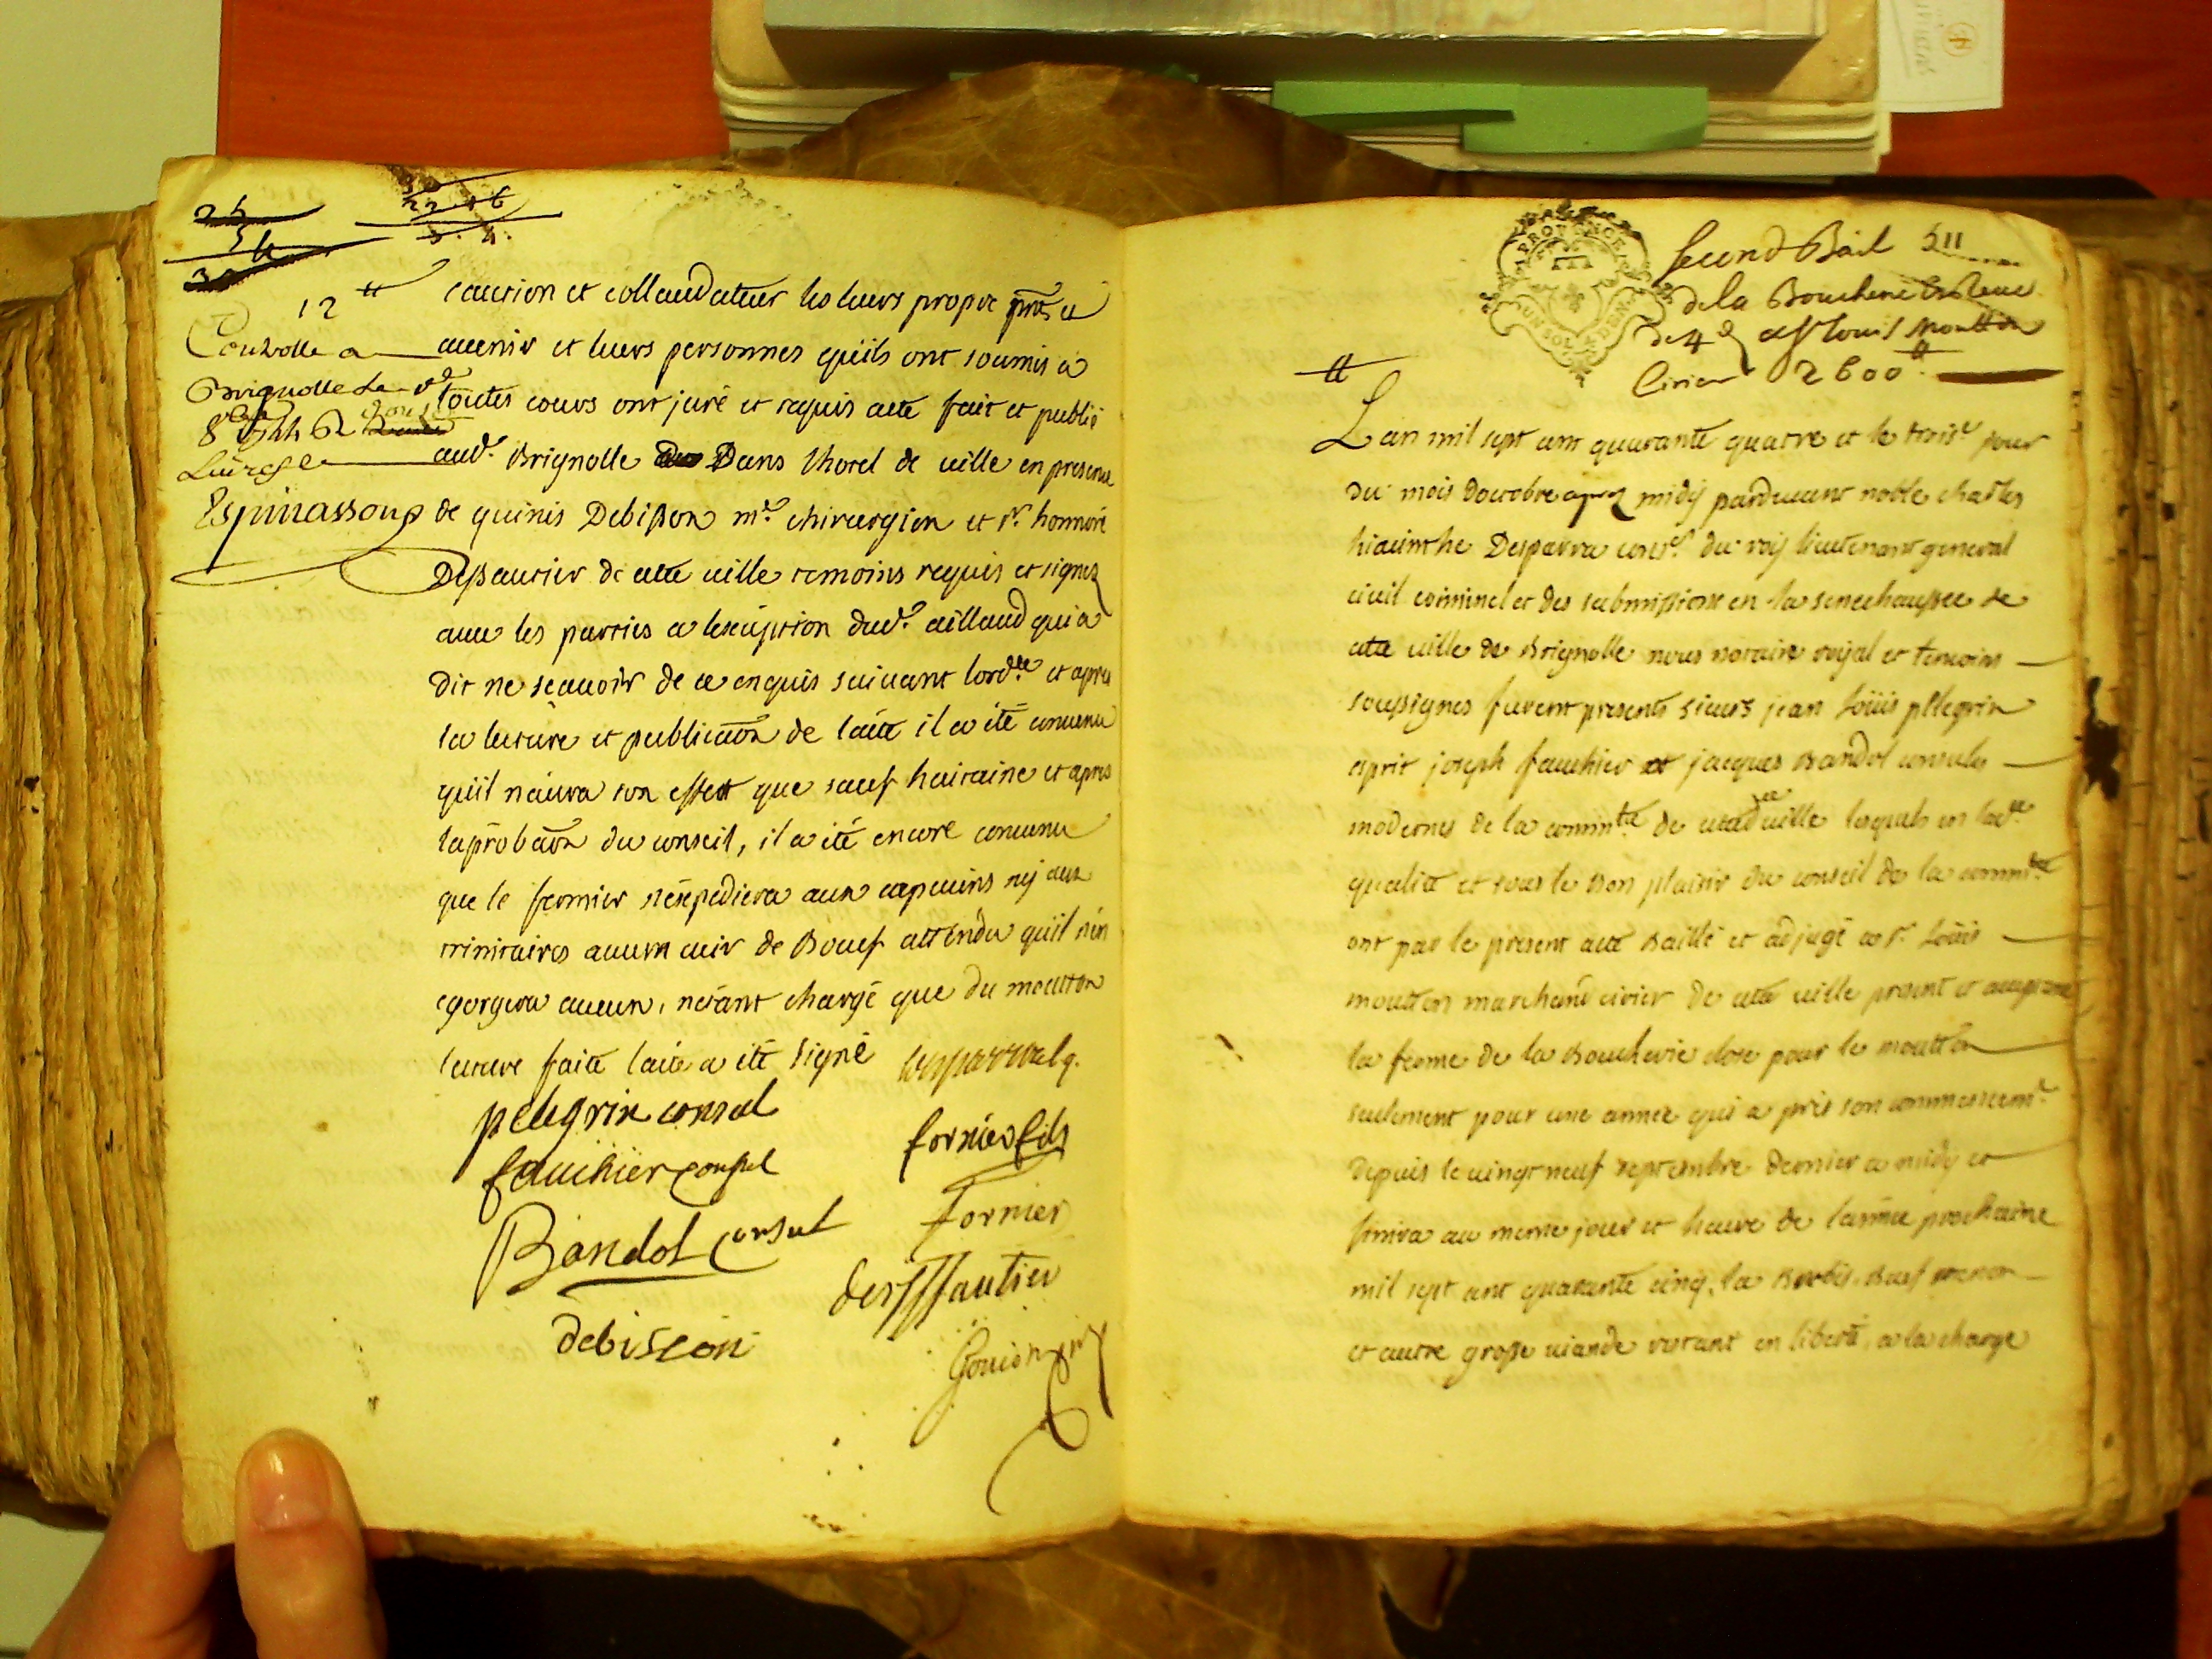 12 ᵗᵗ
Controlle a
Brignolle le
8bre 1744 R
Espinassony
caution et collaudateur les leurs propre pnts et
avenir et leurs personnes quils ont soumis a
toutes cours ont juré et requis acte fait et publié
aud. Brignolle Dans lhotel de ville en presence
de quinis Debisson me. chirurgien et sr. honnoré
Desautier de cette ville temoins requis et signez
avec les parties a lexeuption dud. aillaud qui a
dit ne scavoir de ce enquis suivant lordce et apres
la lecture et publicaon de lacte il a été convenu
quil naura son effect que sauf huitaine et apres
laprobaon du conseil, il a été encore convenu
que le fermier nexpediera aux capucins ny aux
trinitaires aucun cuir de Boeuf attendu quil nen
egorgera aucun, netant chargé que du moutton
lecture faite lacte a été signé Desparralg.
pelegrin consul
fornier fils
fauchier consul
fornier
Bandol Consul
desssautier
debisson
second Bail 511
de la Boucherie
de Sr Louis Moutton
Cirier 2600ᵗᵗ
Lan mil sept cent quarante quatre et le troise. jour
du mois doctobre apres midy pardevant noble charles
hiacinthe Desparra coner. du roy lieutenant general
civil criminel et des submissions en la senechaussee de
cette ville de Brignolle nous notaire royal et temoins
soussignes furent presents sieurs jean Loüis pllegrin
esprit joseph fauchier et jacques Bandol consuls
modernes de la commte de cette ville lesquels en lade
qualité et sous le Bon plaisir du conseil de la commte
ont par le present acte Baillé et adjugé a sr. Loüis
moutton marchand cirier de cette ville present et acceptant
la ferme de la Boucherie close pour le moutton
seulement pour une année qui a pris son commencemt.
Depuis le vingt neuf septembre dernier a midy et
finira au meme jour et heure de lannée prochaine
mil sept cent quarante cinq, la Brebis, Boeuf menon
et autre grosse viande restant en liberté, a la charge